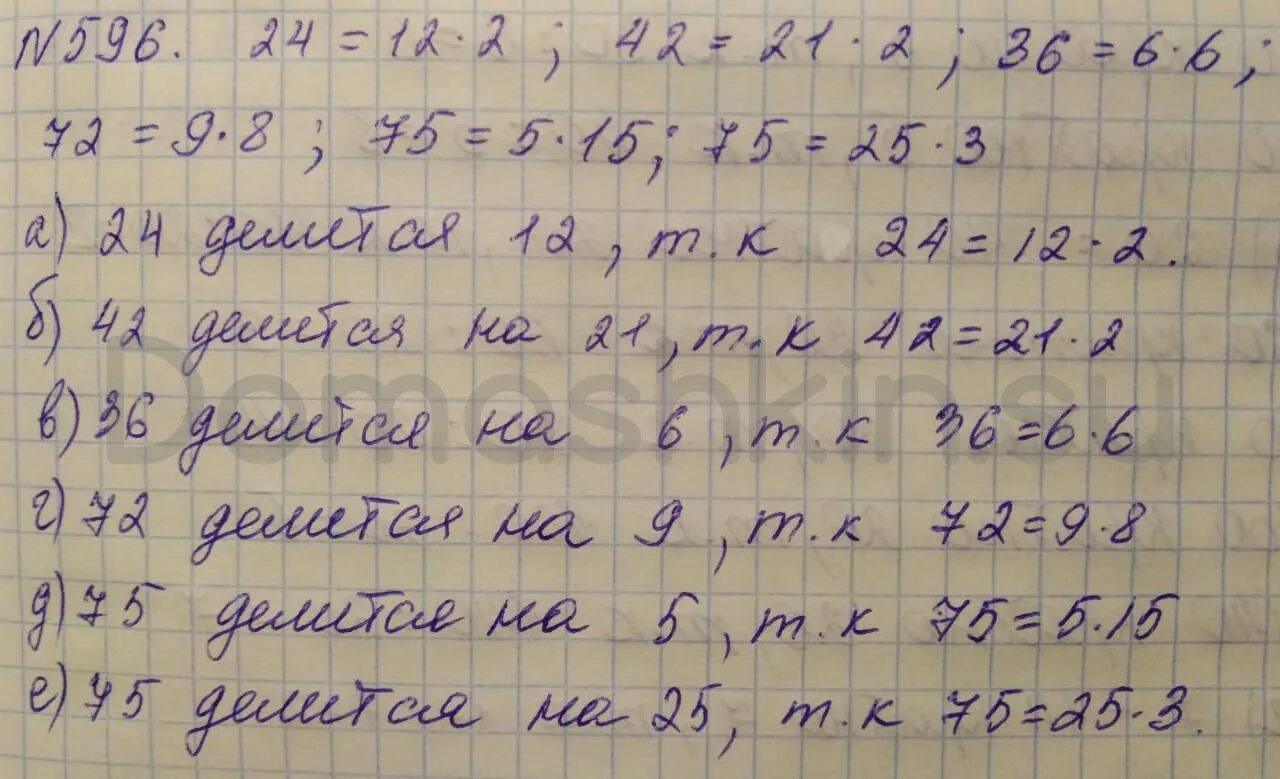 №596. 24 = 12 · 2 ; 42 = 21 · 2 ; 36 = 6 · 6 ;
72 = 9 · 8 ; 75 = 5 · 15 ; 75 = 25 · 3
а) 24 делится 12 , т.к 24 = 12 · 2 .
б) 42 делится на 21 , т.к 42 = 21 · 2
в) 36 делится на 6 , т.к 36 = 6 · 6
г) 72 делится на 9 , т.к 72 = 9 · 8
д) 75 делится на 5 , т.к 75 = 5 · 15
е) 75 делится на 25 , т.к 75 = 25 · 3 .
Domashkin.su